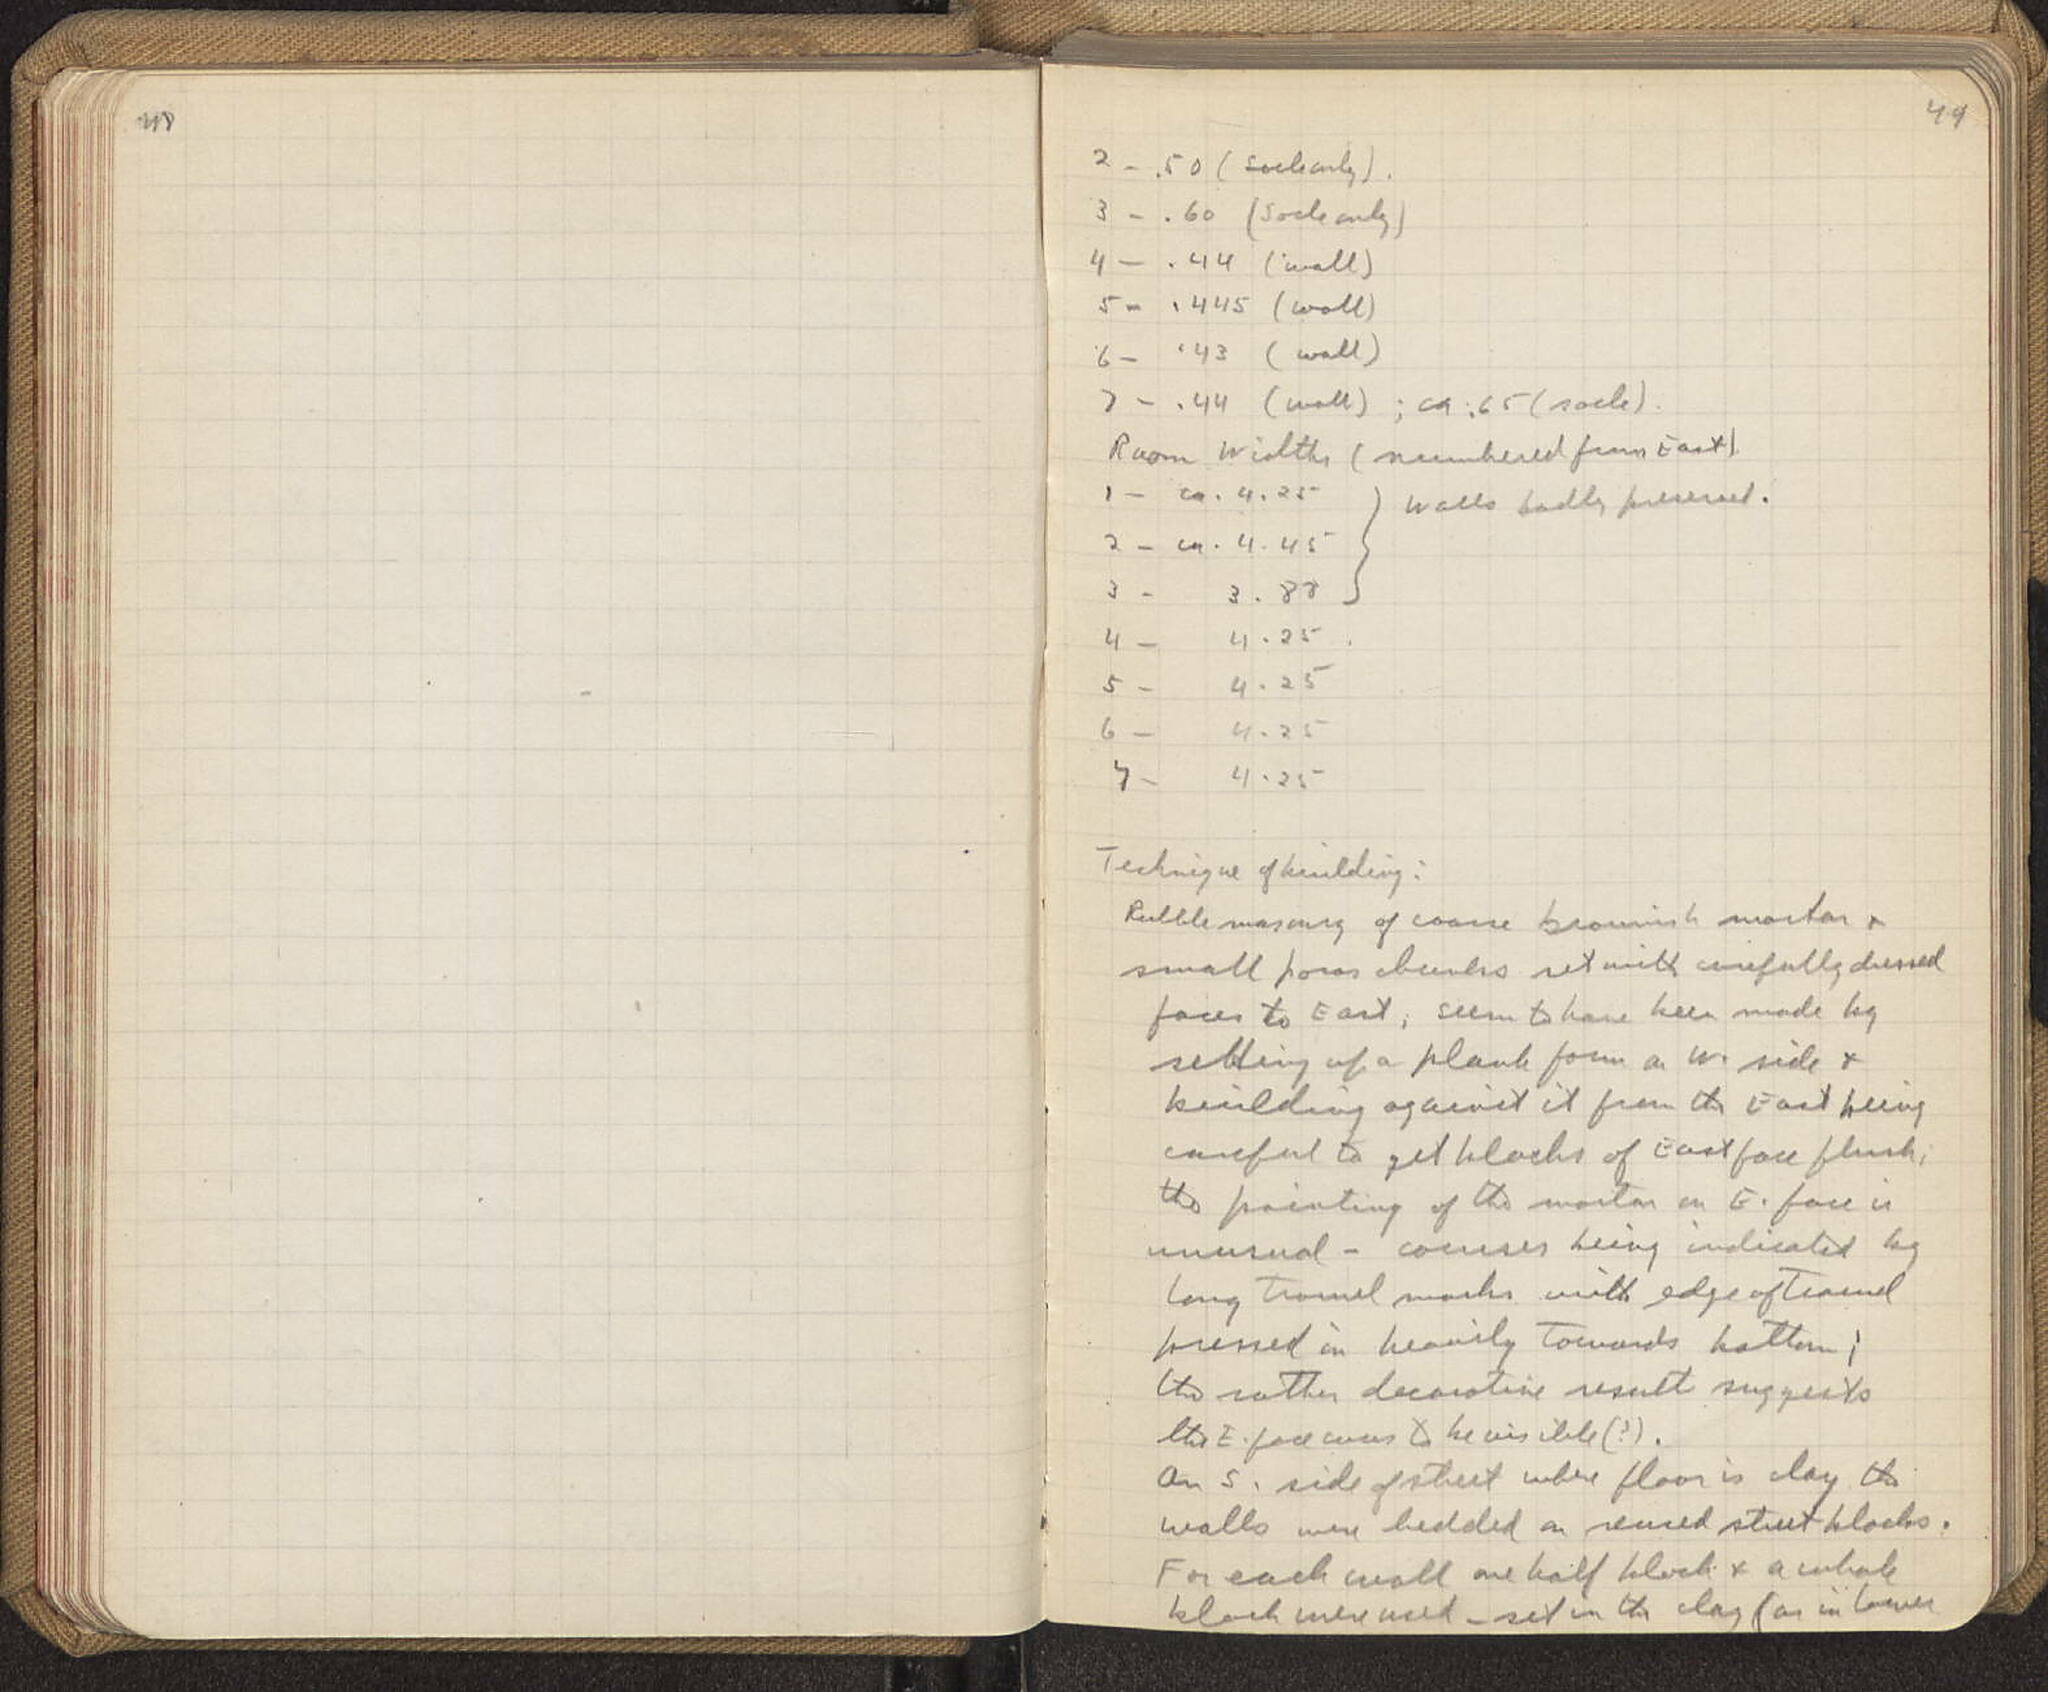 48
49
2 - .50 (Socle only).
3 - .60 (Socle only)
4 - .44 (wall)
5 - .445 (wall)
6 - .43 (wall)
7 - .44 (wall) ; ca .65 (socle).
Room Widths (numbered from East)
1 - ca. 4.25 } Walls badly preserved.
2 - ca. 4.45
3 - 3.88
4 - 4.25.
5 - 4.25
6 - 4.25
7 - 4.25
Technique of building:
Rubble masonry of coarse brownish mortar &
small poros chunks set with carefully dressed
faces to East; seem to have been made by
setting up a plank form on W. side &
building against it from the East being
careful to get blocks of East face flush;
the pointing of the mortar on E. face is
unusual - courses being indicated by
long trowel marks with edge of trowel
pressed in heavily towards bottom;
the rather decorative result suggests
the E. face was to be visible (?).
On S. side of street where floor is clay the
walls were bedded on reused street blocks.
For each wall one half block & a whole
block were used - set in the clay (as in lower